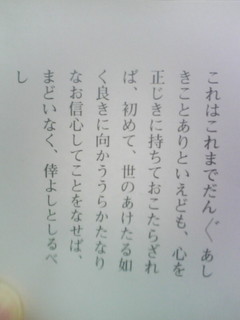 これはこれまでだん〲あし
きことありといえども、心を
正じきに持ちておこたらざれ
ば、初めて、世のあけたる如
く良きに向かううらかたなり
なお信心してことをなせば、
まどいなく、倖よしとしるべ
し